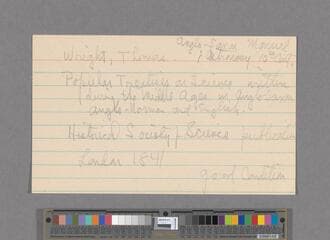 Anglo-Saxon Manual
Wright, Thomas. Astronomy 10th Cent.
Popular Treatises on Science written
during the Middle Ages in Anglo-Saxon
Anglo-Norman and English.
Historical Society of Science publication
London 1841
good Condition